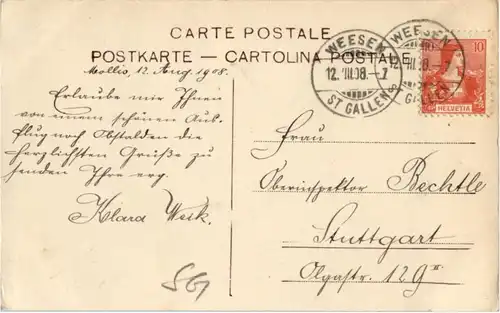 CARTE POSTALE
POSTKARTE — CARTOLINA POSTALE
Mollis, 12. Aug. 1908.
Erlaube mir Ihnen
von einem schönen Aus-
flug nach Obstalden die
herzlichsten Grüße zu
senden Ihre erg.
Klara Weik.
561
WEESEN
12. VIII.08.–7
ST GALLEN
WEESEN
12. VIII.08.–
GALLEN
10
HELVETIA
Frau
Oberinspektor Bechtle
Stuttgart
Olgastr. 129 II